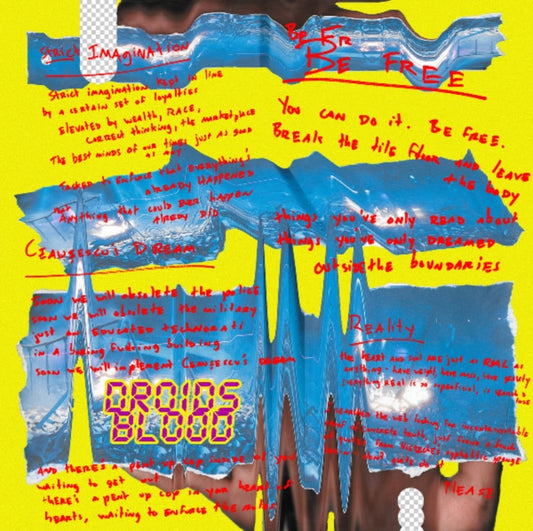 Strict IMAGINATION
Strict imagination kept in line
by a certain set of loyalties
Elevated by wealth, RACE,
correct thinking, the marketplace
The best minds of our times just as good
as any
Tasked to enforce that everything's
already HAPPENED
Not anything that could ever happen
Already Did
Ceausescu's DREAM
Soon we will obsolete the police
soon we will obsolete the military
just an EDUCATED technorati
in a boring fucking building
soon we will implement Ceausescu's DREAM
DROIDS
BLOOD
AND there's A pent up cop inside of you
waiting to get out
there's A pent up cop in your heart of
hearts, waiting to enforce the rules
Be Fr
BE FREE
You can do it. BE FREE.
BREAK the tile floor and leave
the body
things you've only READ about
things you've only DREAMED
outside the boundaries
Reality
the HEART and soul are just as REAL as
anything - have weight, have mass, have gravity
everything REAL is so superficial, is
I searched the web looking for
of concrete truth, just
of quotes from Nietzsche's syphilitic
don't
PLEASE